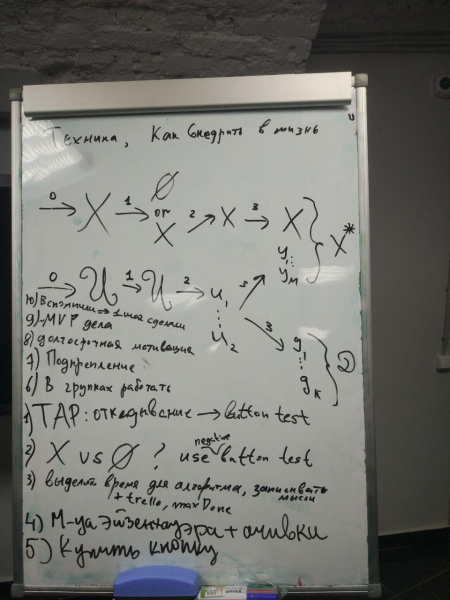 Техника, Как внедрить в жизнь
0 → X 1 → ∅ or X 2 → X 3 → X y₁ ⋮ yₘ } X*
0 → U 1 → U 2 → u₁ ⋮ u₂ 3 → 3 → g₁ ⋮ gₖ }
10) Вспомнили ⇒ 1 шаг сделали
9) MVP дела
8) долгосрочная мотивация
7) Подкрепление
6) В группах работать
1) TAP: откладывание → button test
2) X vs ∅ ? use negative button test
3) выделить время для алгоритма, записывать мысли
+ trello, mark Done
4) М-ца Эйзенхауэра + ачивки
5) Купить кнопку